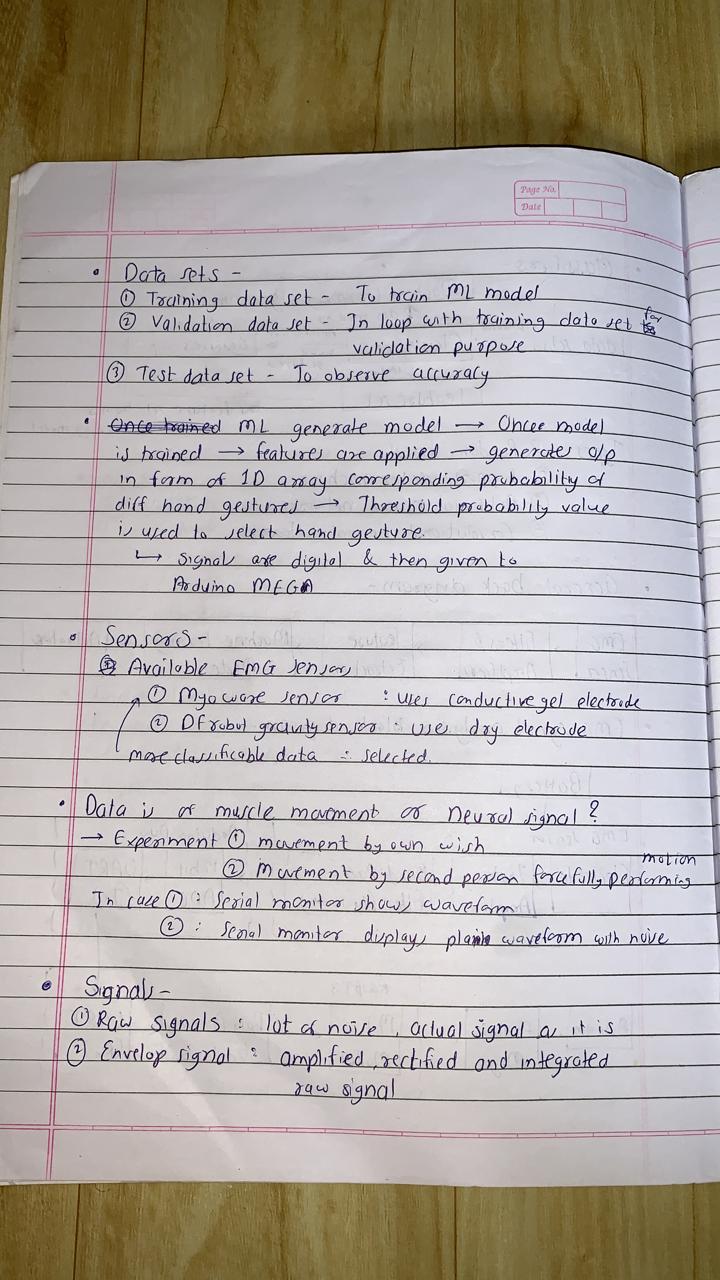 Page No.
Date
• Data sets -
① Training data set - To train ML model
② Validation data set - In loop with training data set for
validation purpose
③ Test data set - To observe accuracy
• Once trained ML generate model → Oncee model
is trained → features are applied → generates o/p
in form of 1D array corresponding probability of
diff hand gestures → Threshold probability value
is used to select hand gesture.
↳ signals are digital & then given to
Arduino MEGA
• Sensors -
Available EMG sensors
① Myoware sensor : uses conductive gel electrode
② DF robot gravity sensor : uses dry electrode
more classificable data ∴ selected.
• Data is of muscle movement or Neural signal ?
→ Experiment ① movement by own wish
② Movement by second person forcefully performing motion
In case ① : Serial monitor shows waveform
② : Serial monitor displays plain waveform with noise
• Signals -
① Raw signals : lot of noise, actual signal as it is
② Envelop signal : amplified, rectified and integrated
raw signal